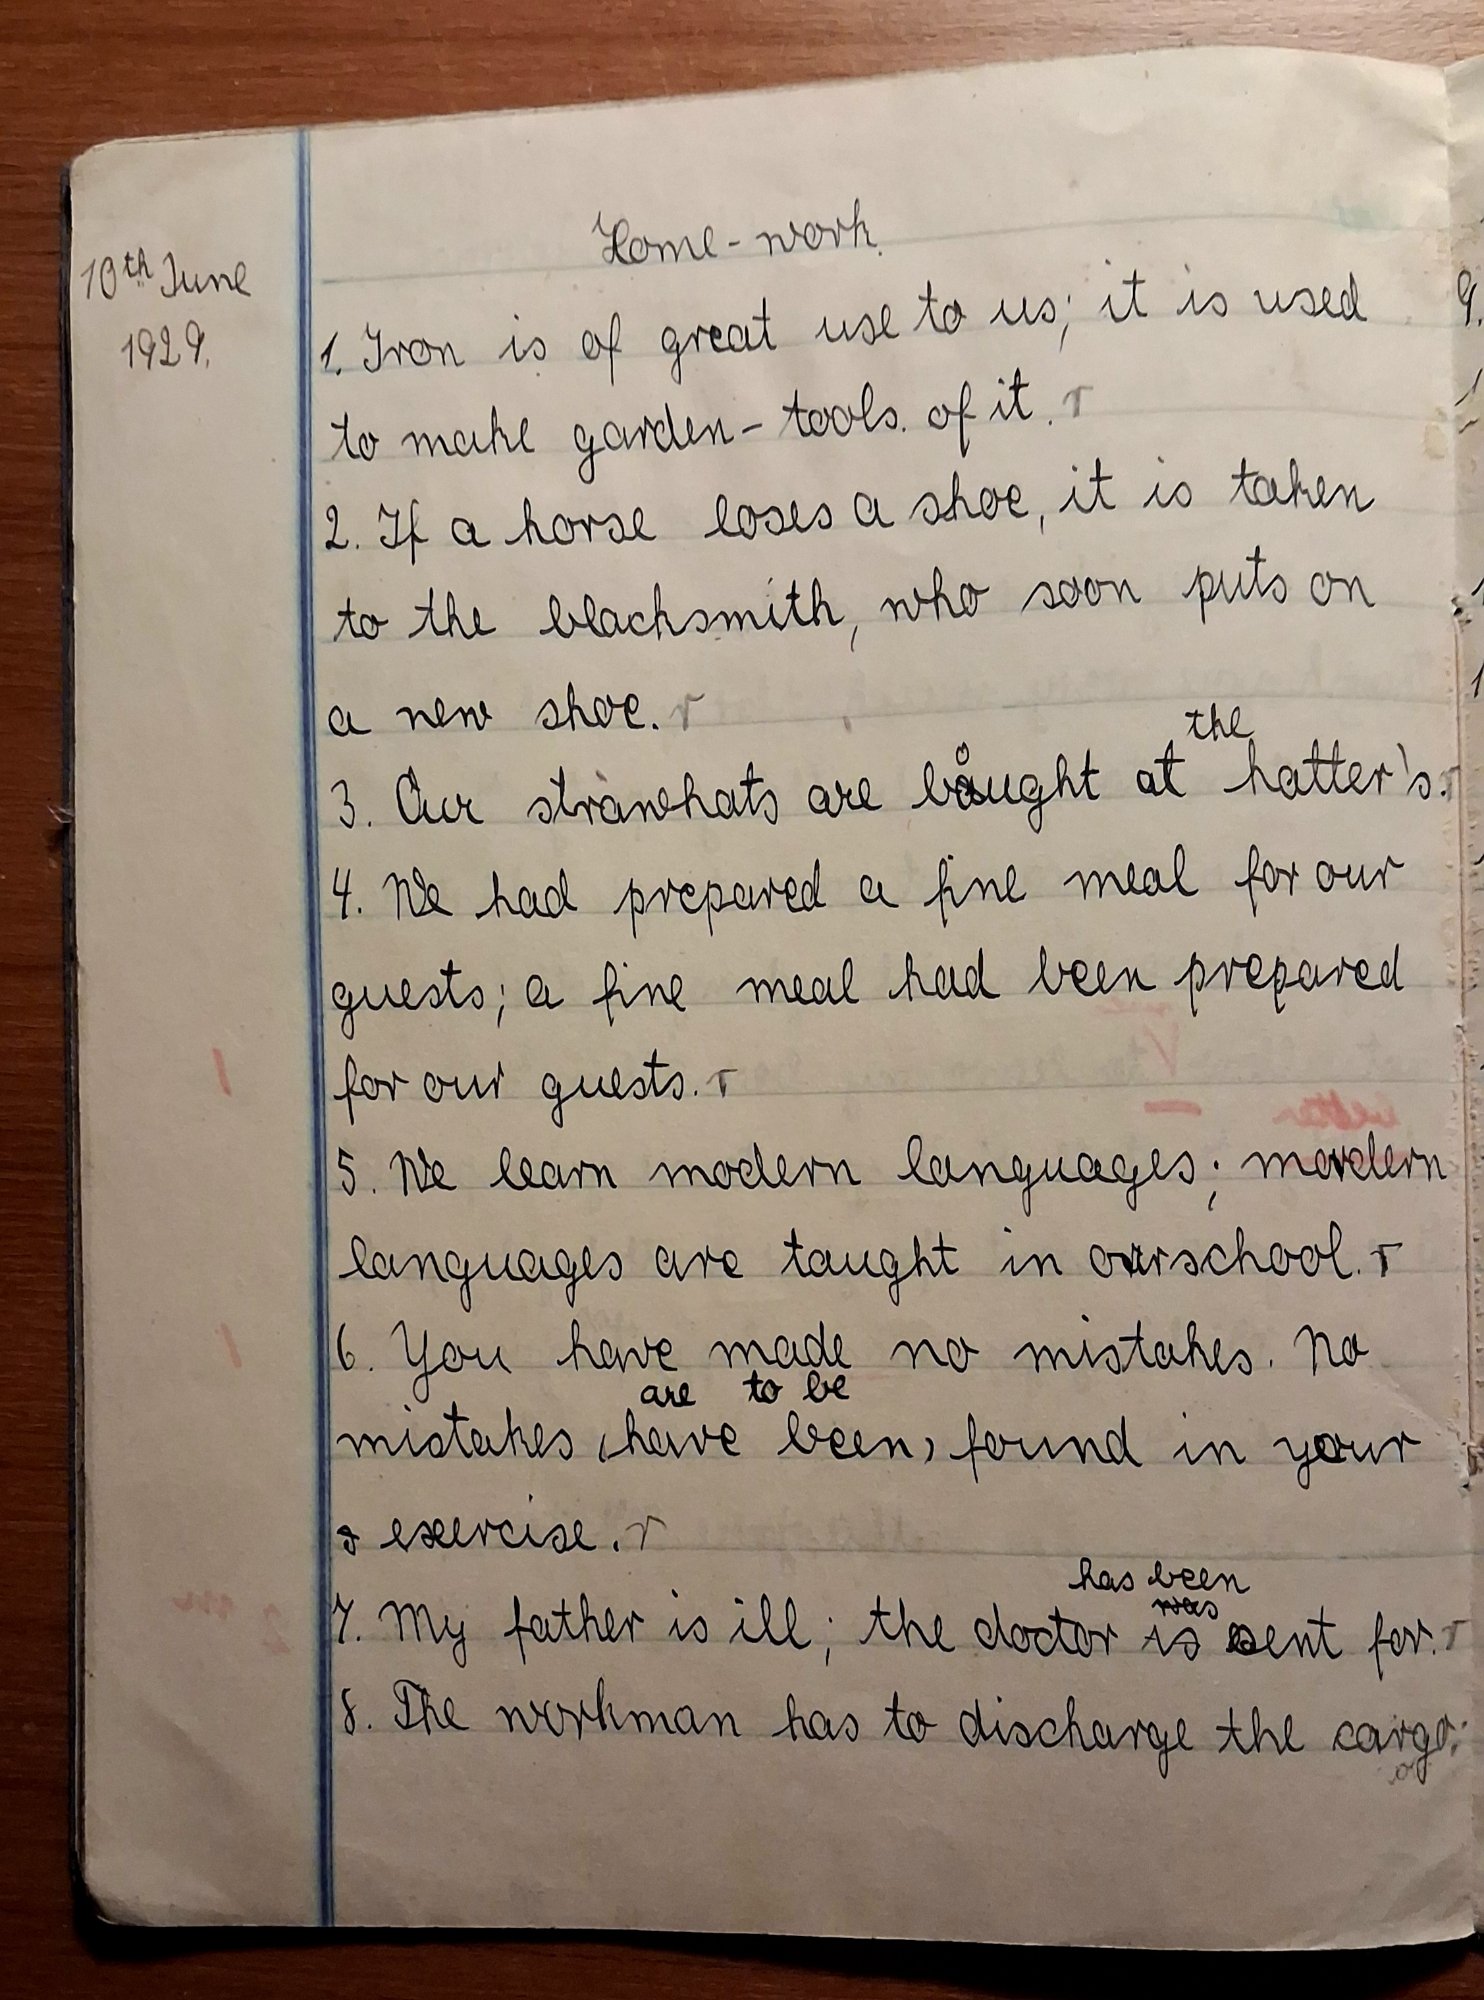 Home-work.
10th June
1929.
1. Iron is of great use to us; it is used
to make garden-tools. of it. r
2. If a horse loses a shoe, it is taken
to the blacksmith, who soon puts on
a new shoe. r
the
3. Our strawhats are bought at hatter's. r
4. We had prepared a fine meal for our
guests; a fine meal had been prepared
for our guests. r
5. We learn modern languages; modern
languages are taught in our school. r
6. You have made no mistakes. No
are to be
mistakes (have been) found in your
exercise. r
has been
was
7. My father is ill; the doctor is sent for. r
8. The workman has to discharge the cargo;